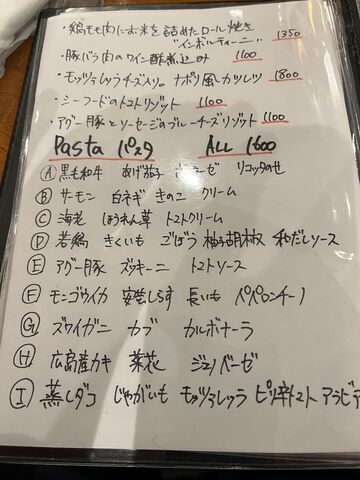 ・鶏もも肉にお米を詰めたロール焼き
"インボルティーニ" 1350
・豚バラ肉のワイン酢煮込み 1100
・モッツァレラチーズ入り。ナポリ風カツレツ 1800
・シーフードのトマトリゾット 1100
・アグー豚とソーセージのブルーチーズリゾット 1100
Pasta パスタ ALL 1600
Ⓐ 黒毛和牛 あげ茄子 ボロネーゼ リコッタのせ
Ⓑ サーモン 白ネギ きのこ クリーム
Ⓒ 海老 ほうれん草 トマトクリーム
Ⓓ 若鶏 きくいも ごぼう 柚子胡椒 和だしソース
Ⓔ アグー豚 ズッキーニ トマトソース
Ⓕ モンゴウイカ 安芸しらす 長いも ペペロンチーノ
Ⓖ ズワイガニ カブ カルボナーラ
Ⓗ 広島産カキ 菜花 ジェノベーゼ
Ⓘ 蒸しダコ じゃがいも モッツァレラ ピリ辛トマト アラビア